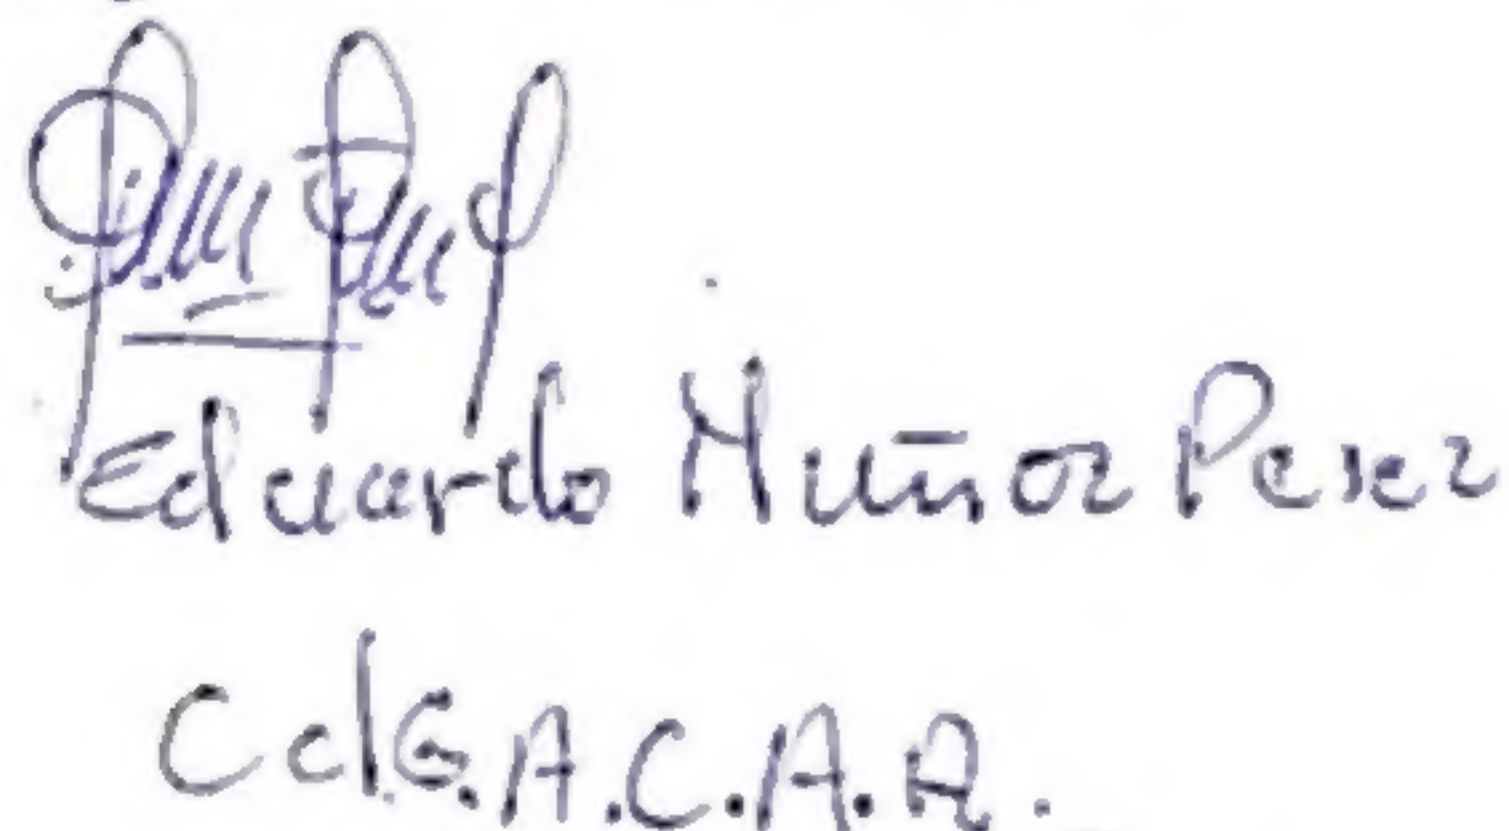 Eduardo Muñoz Perez
CdG.A.C.A.R.